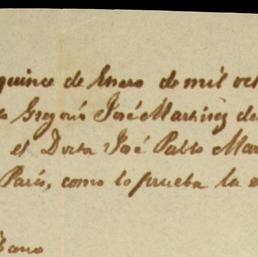 quince de Enero de mil oct
Gregorio José Martínez de
el Doctor José Pablo Mar
París, como lo prueba la